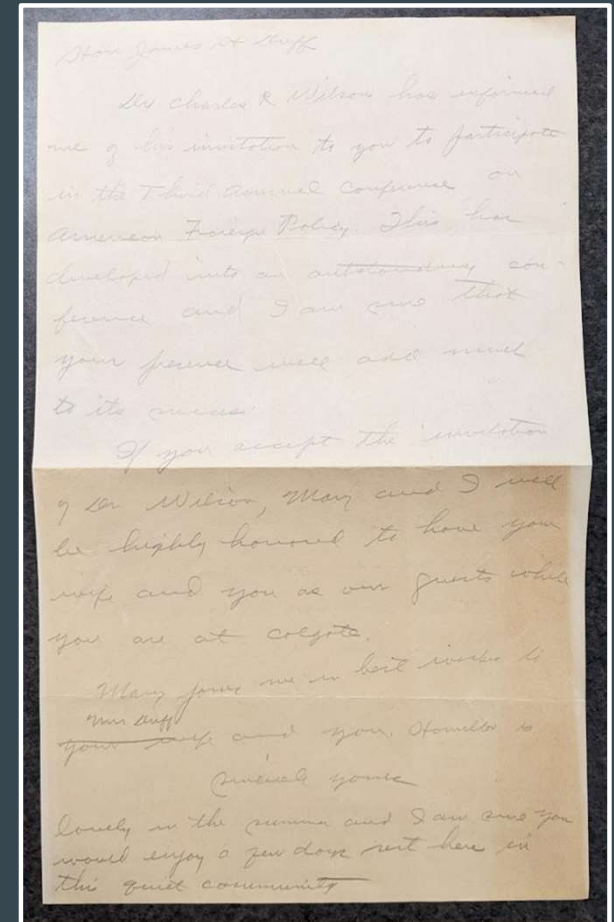 Hon James H Duff
Dr Charles R Wilson has informed
me of his invitation to you to participate
in the Third Annual Conference on
American Foreign Policy. This has
developed into an outstanding con-
ference and I am sure that
your presence will add much
to its success.
If you accept the invitation
of Dr Wilson, Mary and I will
be highly honored to have your
wife and you as our guests while
you are at Colgate.
Mary joins me in best wishes to
Mrs Duff
your wife and you. Hamilton is
Sincerely yours
lovely in the summer and I am sure you
would enjoy a few days rest here in
this quiet community